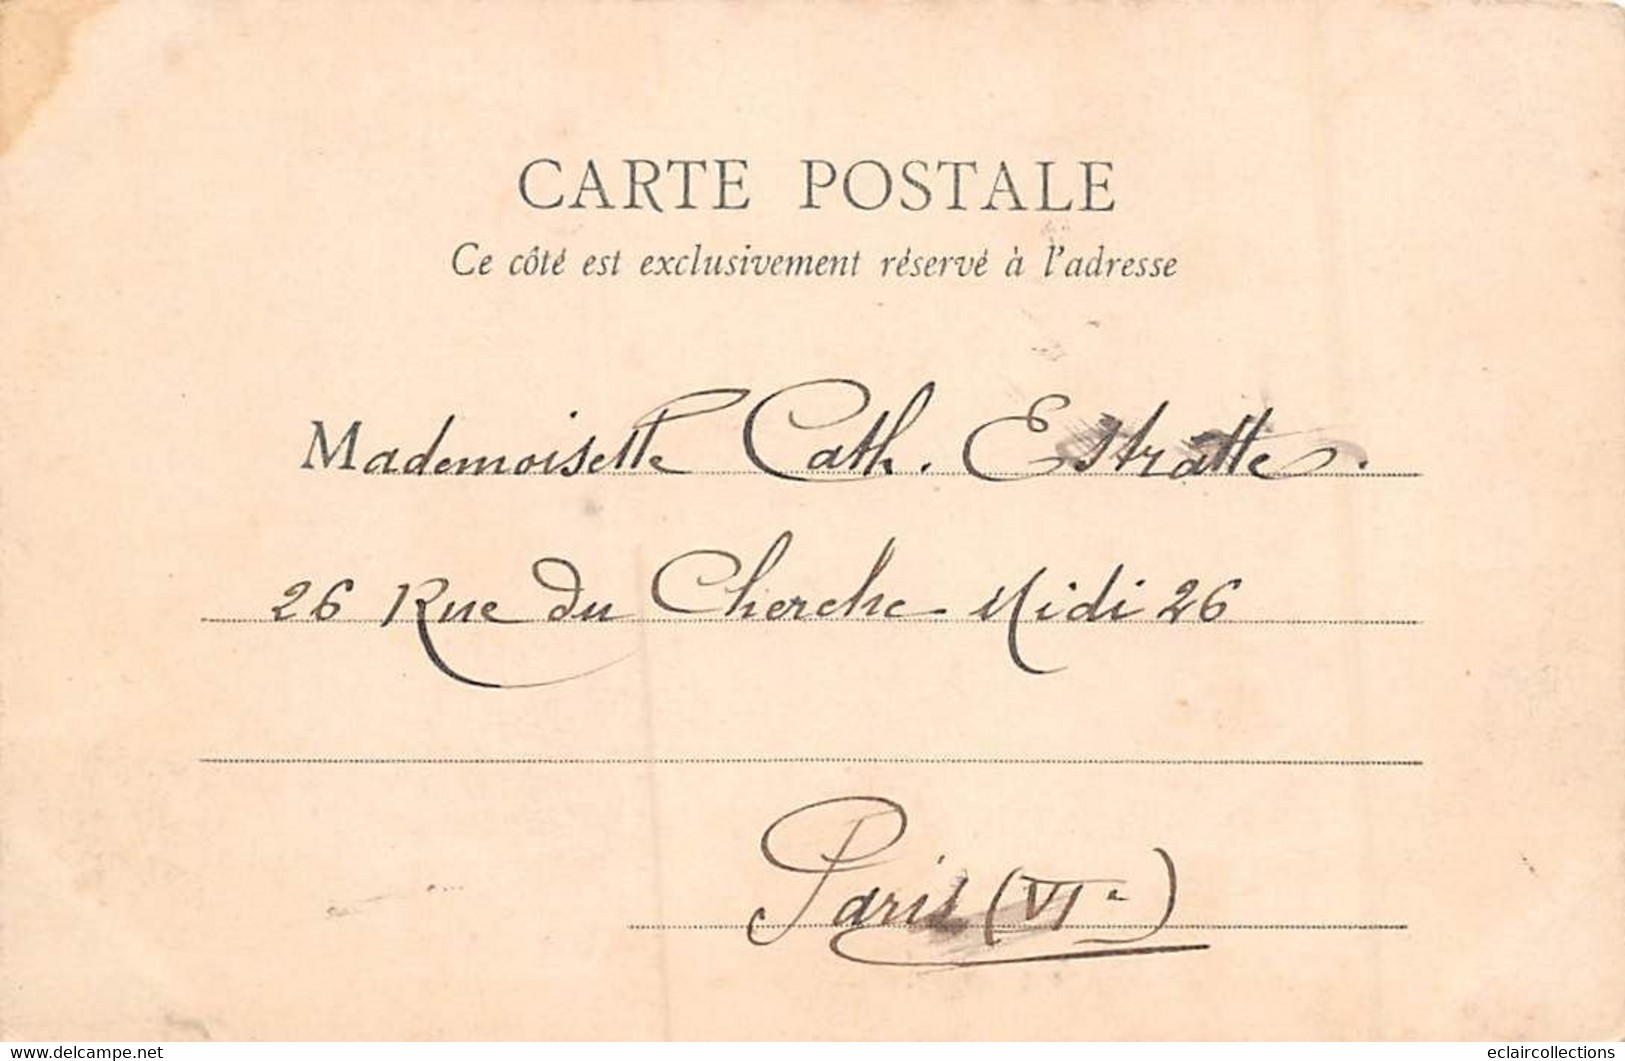 CARTE POSTALE
Ce côté est exclusivement réservé à l'adresse
Mademoiselle Cath. Estratte.
26 Rue du Cherche Midi 26
Paris (VIe)
www.delcampe.net
eclaircollections